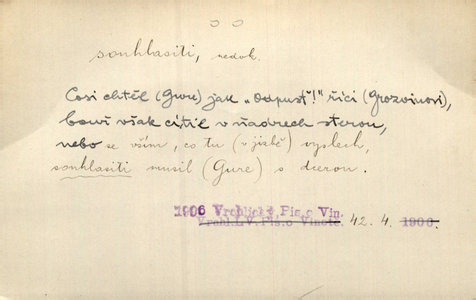 souhlasiti, nedok.
Cosi chtěl (Gure) jak „Odpusť!" říci (Grozvinovi),
však cítil v ňadrech
nebo se vším, co tu (v jiskě) vyslech,
souhlasiti musil (Gure) s dcerou.
1906 Vrchlický, Pís. o Vin.
Vrchl. V. Pís. o Vinetě. 42. 4. 1906.